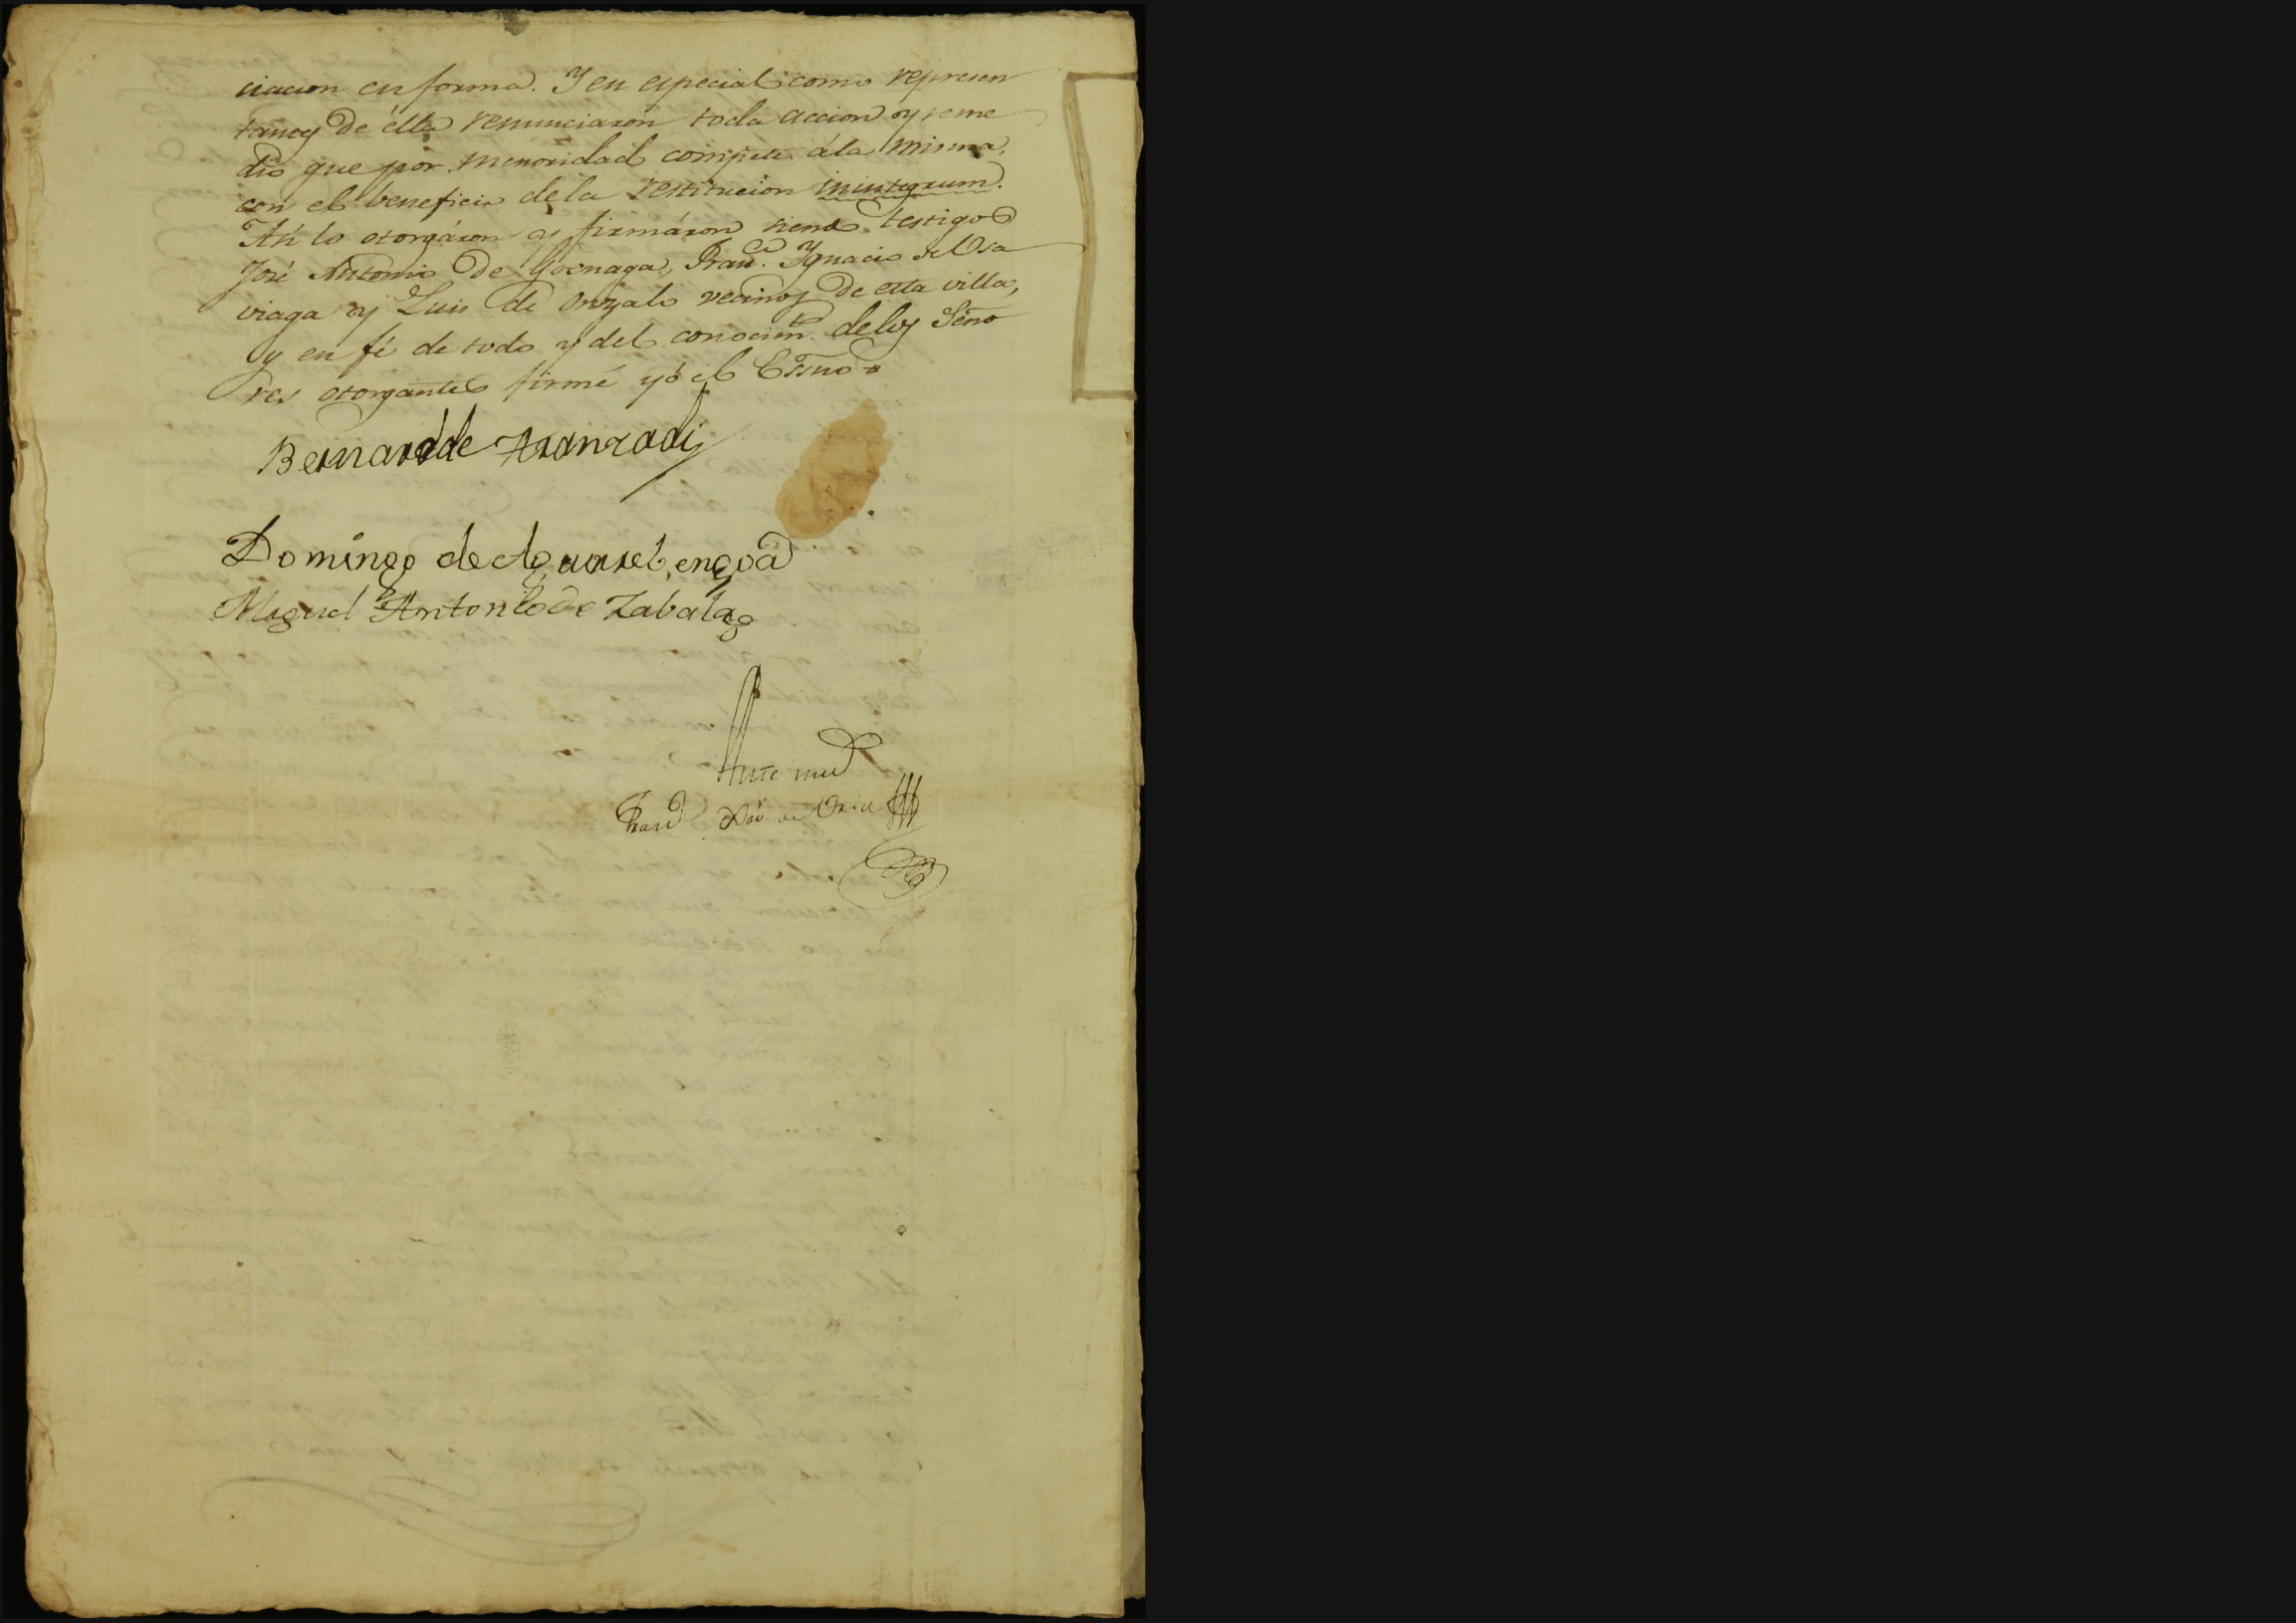 ciacion en forma. Y en especial como represen
tantes de élla renunciaron toda accion y reme
dio que por menoridad compete ála misma,
con el beneficio de la restitucion inintegrum.
Asi lo otorgáron y firmáron siendo testigos
José Antonio de Goenaga, Fran.co Ygnacio de Usa
viaga y Luis de vecinos de esta villa,
y en fé de todo y del conocim.to delos Seño
res otorgantes firmé yó el Essno
Bernardo de Aranzadi
Domingo de
Miguel Antonio de Zabala
Ante mi
Fran.co Xav.r de Oria